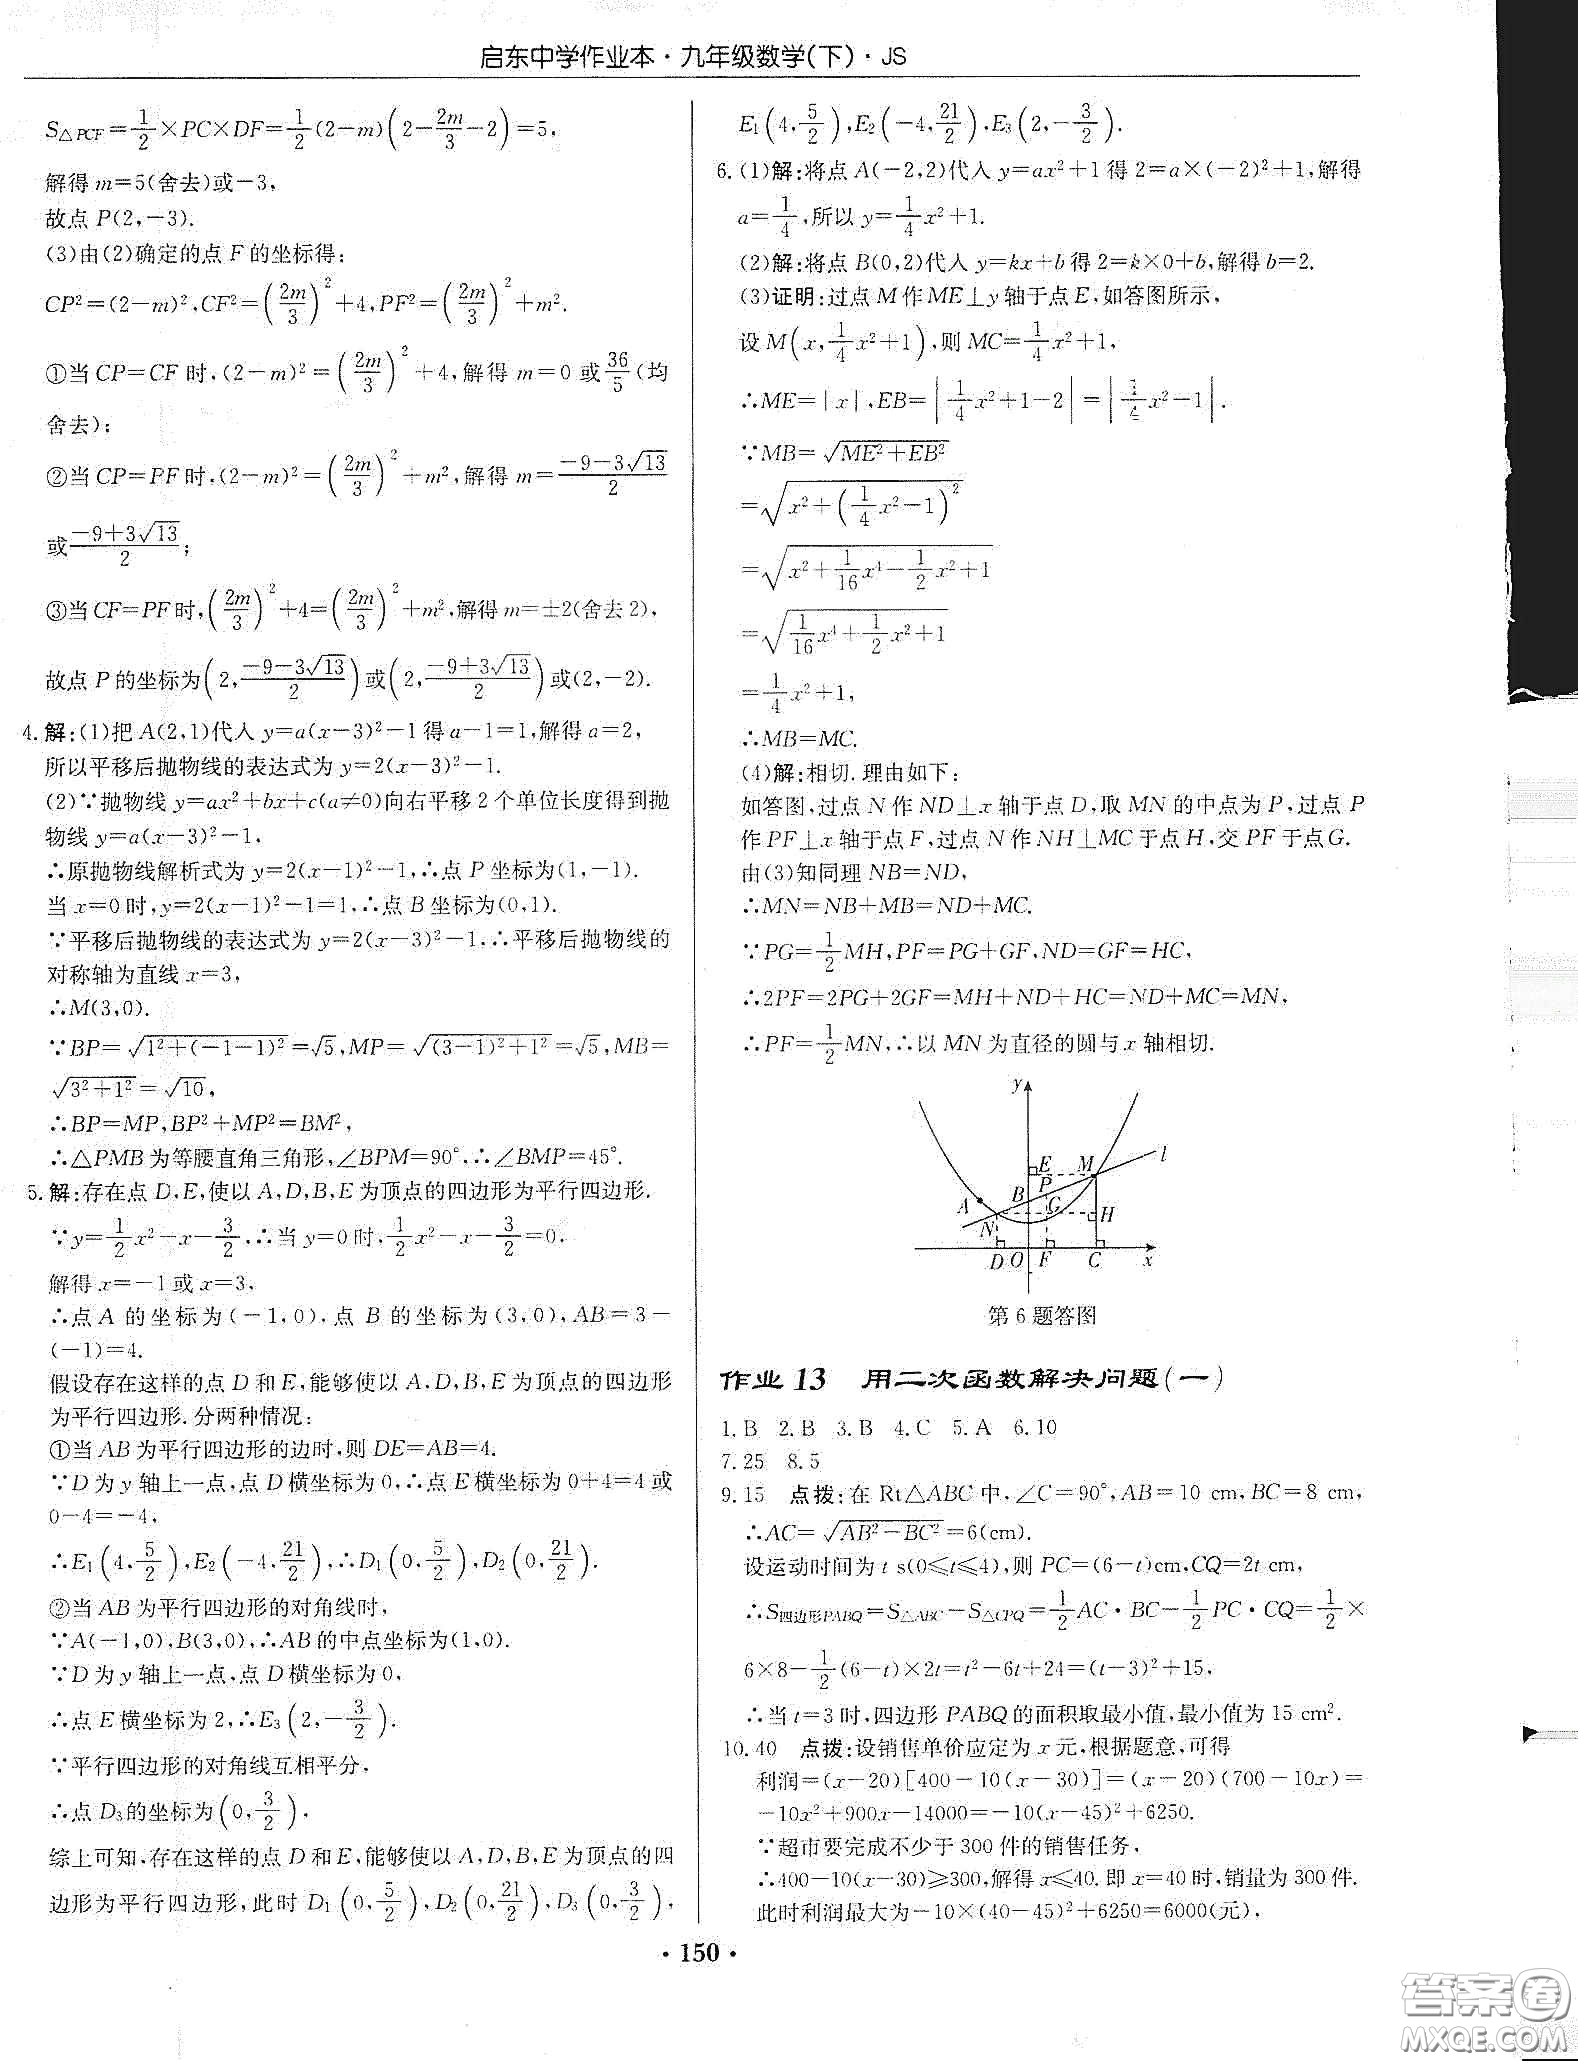 启东中学作业本·九年级数学(下)·JS
S△PCF=1/2×PC×DF=1/2(2-m)(2-2m/3-2)=5,
解得 m=5(舍去)或-3,
故点 P(2,-3).
(3)由(2)确定的点 F 的坐标得:
CP²=(2-m)²,CF²=(2m/3)²+4,PF²=(2m/3)²+m².
①当 CP=CF 时,(2-m)²=(2m/3)²+4,解得 m=0 或36/5(均
舍去);
②当 CP=PF 时,(2-m)²=(2m/3)²+m²,解得 m=(-9-3√13)/2
或(-9+3√13)/2;
③当 CF=PF 时,(2m/3)²+4=(2m/3)²+m²,解得 m=±2(舍去2),
故点 P 的坐标为(2,(-9-3√13)/2)或(2,(-9+3√13)/2)或(2,-2).
4.解:(1)把 A(2,1)代入 y=a(x-3)²-1 得 a-1=1,解得 a=2,
所以平移后抛物线的表达式为 y=2(x-3)²-1.
(2)∵抛物线 y=ax²+bx+c(a≠0)向右平移 2 个单位长度得到抛
物线 y=a(x-3)²-1,
∴原抛物线解析式为 y=2(x-1)²-1,∴点 P 坐标为(1,-1).
当 x=0 时,y=2(x-1)²-1=1,∴点 B 坐标为(0,1).
∵平移后抛物线的表达式为 y=2(x-3)²-1,∴平移后抛物线的
对称轴为直线 x=3,
∴M(3,0).
∵BP=√(1²+(-1-1)²)=√5,MP=√((3-1)²+1²)=√5,MB=
√(3²+1²)=√10,
∴BP=MP,BP²+MP²=BM²,
∴△PMB 为等腰直角三角形,∠BPM=90°,∴∠BMP=45°.
5.解:存在点 D,E,使以 A,D,B,E 为顶点的四边形为平行四边形.
∵y=1/2x²-x-3/2,∴当 y=0 时,1/2x²-x-3/2=0,
解得 x=-1 或 x=3,
∴点 A 的坐标为(-1,0),点 B 的坐标为(3,0),AB=3-
(-1)=4.
假设存在这样的点 D 和 E,能够使以 A,D,B,E 为顶点的四边形
为平行四边形.分两种情况:
①当 AB 为平行四边形的边时,则 DE=AB=4.
∵D 为 y 轴上一点,点 D 横坐标为 0,∴点 E 横坐标为 0+4=4 或
0-4=-4,
∴E₁(4,5/2),E₂(-4,21/2),∴D₁(0,5/2),D₂(0,21/2).
②当 AB 为平行四边形的对角线时,
∵A(-1,0),B(3,0),∴AB 的中点坐标为(1,0).
∵D 为 y 轴上一点,点 D 横坐标为 0,
∴点 E 横坐标为 2,∴E₃(2,-3/2).
∵平行四边形的对角线互相平分,
∴点 D₃的坐标为(0,3/2),
综上可知,存在这样的点 D 和 E,能够使以 A,D,B,E 为顶点的四
边形为平行四边形,此时 D₁(0,5/2),D₂(0,21/2),D₃(0,3/2),
E₁(4,5/2),E₂(-4,21/2),E₃(2,-3/2).
6.(1)解:将点 A(-2,2)代入 y=ax²+1 得 2=a×(-2)²+1,解得
a=1/4,所以 y=1/4x²+1.
(2)解:将点 B(0,2)代入 y=kx+b 得 2=k×0+b,解得 b=2.
(3)证明:过点 M 作 ME⊥y 轴于点 E,如答图所示,
设 M(x,1/4x²+1),则 MC=1/4x²+1,
∴ME=|x|,EB=|1/4x²+1-2|=|1/4x²-1|.
∵MB=√(ME²+EB²)
=√(x²+(1/4x²-1)²)
=√(x²+1/16x⁴-1/2x²+1)
=√(1/16x⁴+1/2x²+1)
=1/4x²+1,
∴MB=MC.
(4)解:相切.理由如下:
如答图,过点 N 作 ND⊥x 轴于点 D,取 MN 的中点为 P,过点 P
作 PF⊥x 轴于点 F,过点 N 作 NH⊥MC 于点 H,交 PF 于点G.
由(3)知同理 NB=ND,
∴MN=NB+MB=ND+MC.
∵PG=1/2MH,PF=PG+GF,ND=GF=HC,
∴2PF=2PG+2GF=MH+ND+HC=ND+MC=MN,
∴PF=1/2MN,∴以 MN 为直径的圆与 x 轴相切.
y
E M l
P
A B G H
N
D O F C x
第 6 题答图
作业 13 用二次函数解决问题(一)
1.B 2.B 3.B 4.C 5.A 6.10
7.25 8.5
9.15 点拨:在 Rt△ABC 中,∠C=90°,AB=10 cm,BC=8 cm,
∴AC=√(AB²-BC²)=6(cm).
设运动时间为 t s(0≤t≤4),则 PC=(6-t)cm,CQ=2t cm,
∴S四边形PABQ=S△ABC-S△CPQ=1/2AC·BC-1/2PC·CQ=1/2×
6×8-1/2(6-t)×2t=t²-6t+24=(t-3)²+15,
∴当 t=3 时,四边形 PABQ 的面积取最小值,最小值为 15 cm².
10.40 点拨:设销售单价应定为 x 元,根据题意,可得
利润=(x-20)[400-10(x-30)]=(x-20)(700-10x)=
-10x²+900x-14000=-10(x-45)²+6250.
∵超市要完成不少于 300 件的销售任务,
∴400-10(x-30)≥300,解得 x≤40.即 x=40 时,销量为 300 件.
此时利润最大为-10×(40-45)²+6250=6000(元),
·150·
答案卷
MXQE.COM